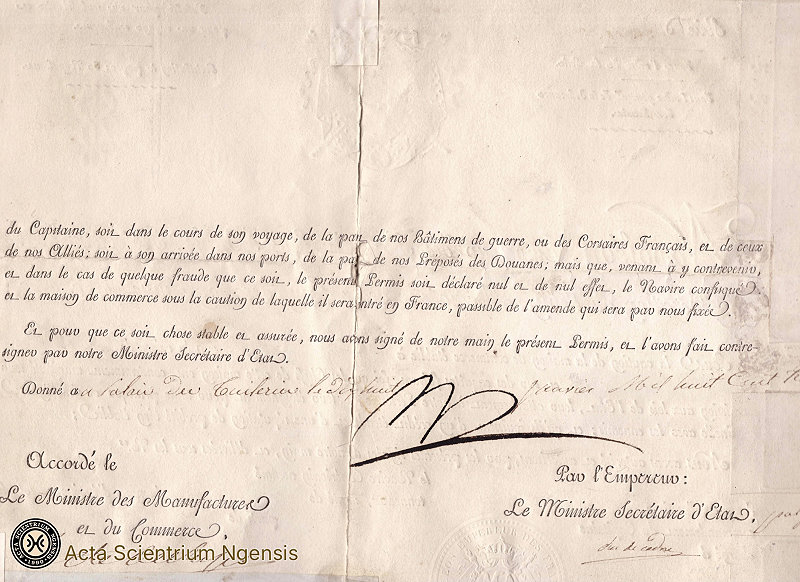 du Capitaine, soit dans le cours de son voyage, de la part de nos Bâtimens de guerre, ou des Corsaires Français, et de ceux
de nos Alliés; soit à son arrivée dans nos ports, de la part de nos Préposés des Douanes; mais que, venant à y contrevenir,
et dans le cas de quelque fraude que ce soit, le présent Permis soit déclaré nul et de nul effet, le Navire confisqué
et la maison de commerce sous la caution de laquelle il sera entré en France, passible de l'amende qui sera par nous fixée.
Et pour que ce soit chose stable et assurée, nous avons signé de notre main le présent Permis, et l'avons fait contre-
signer par notre Ministre Secrétaire d'Etat.
Donné au Palais des Tuileries le dix huit janvier Mil huit Cent
Accordé le
Le Ministre des Manufactures
et du Commerce.
Par l'Empereur:
Le Ministre Secrétaire d'Etat.
duc de Cadore
Acta Scientrium Ngensis